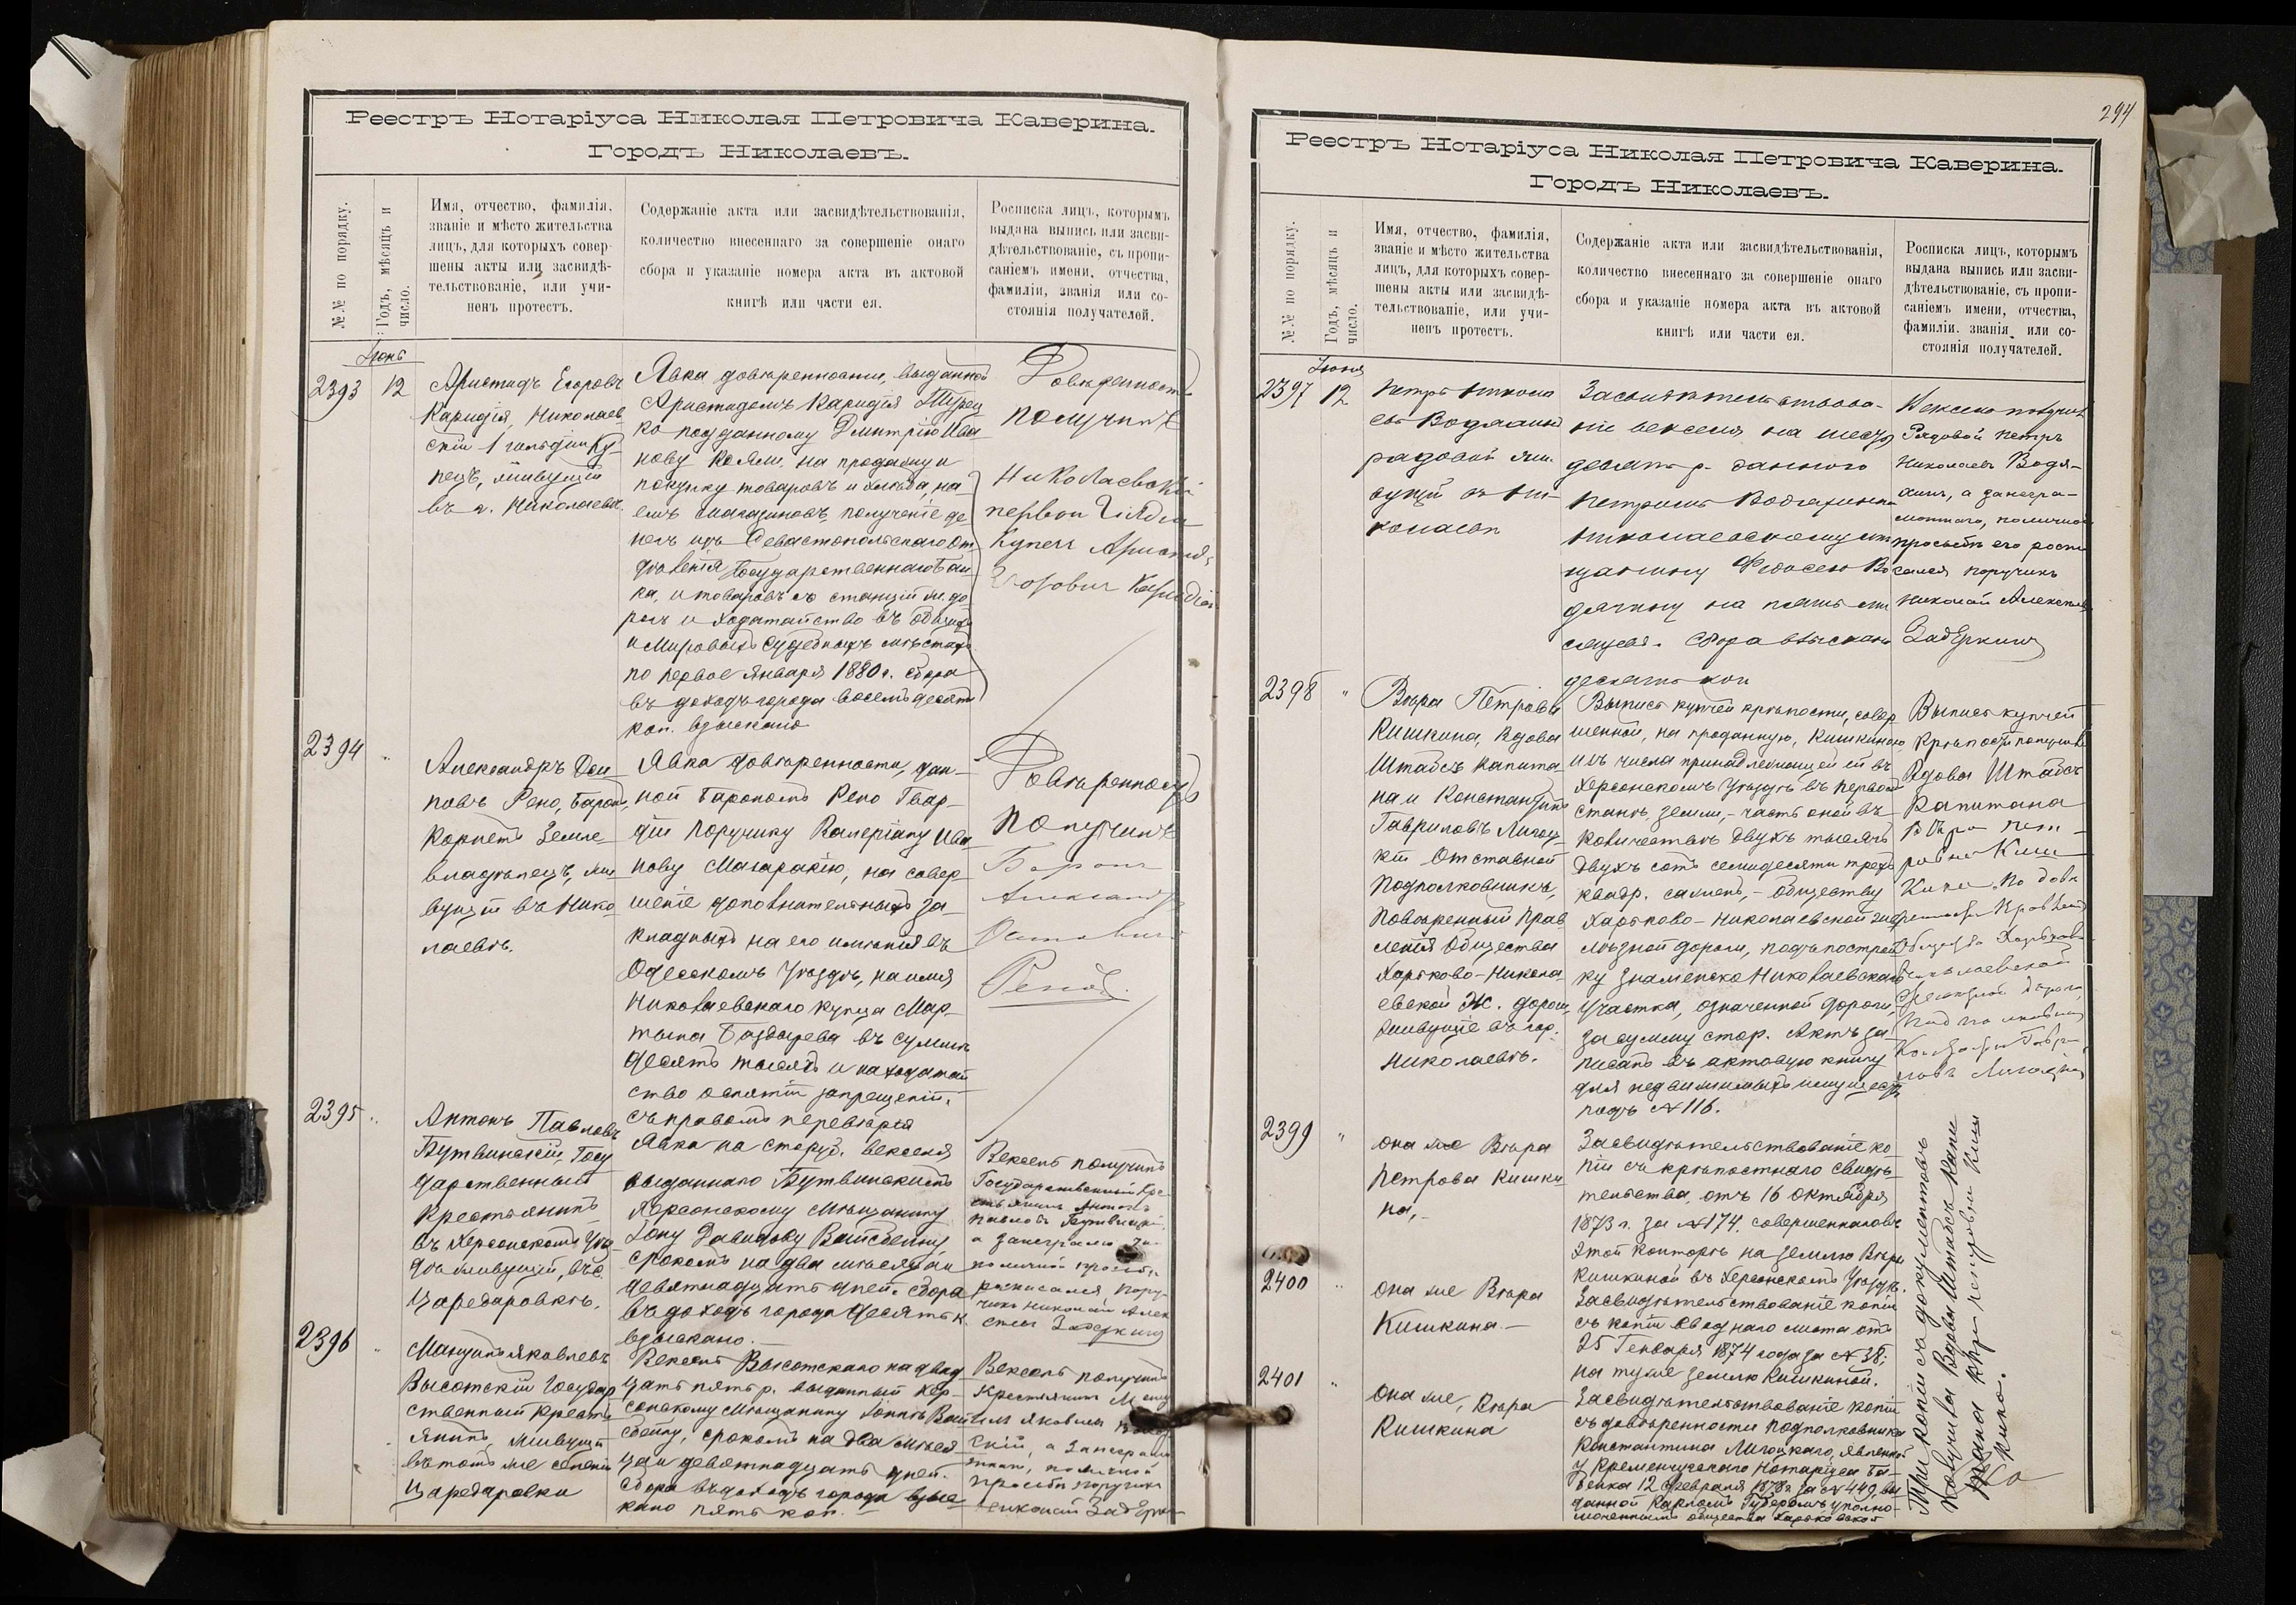 Реестръ Нотаріуса Николая Петровича Каверина.
Городъ Николаевъ.
№№ по порядку.
Годъ, мѣсяцъ и
число.
Имя, отчество, фамилія,
званіе и мѣсто жительства
лицъ, для которыхъ совер-
шены акты или засвидѣ-
тельствованіе, или учи-
ненъ протестъ.
Содержаніе акта или засвидѣтельствованія,
количество внесеннаго за совершеніе онаго
сбора и указаніе номера акта въ актовой
книгѣ или части ея.
Росписка лицъ, которымъ
выдана выпись или засви-
дѣтельствованіе, съ пропи-
саніемъ имени, отчества,
фамиліи, званія или со-
стоянія получателей.
2393
12
Аристидъ Егоровъ
Каридія, Николаев
скій 1 гильдіи Ку-
пецъ, живущій
въ г. Николаевѣ.
Явка довѣренности, выданной
Аристидомъ Каридія Турец
ко подданному Дмитрію Ива
нову на продажу и
покупку товаровъ и хлѣба, на
емъ магазиновъ, полученіе де
негъ изъ Севастопольскаго От
дѣленія Государственнаго Бан
ка, и товаровъ со станцій ж. до
рогъ и ходатайство въ общихъ
и Мировыхъ Судебныхъ мѣстахъ
по первое Января 1880 г. сбора
въ доходъ города восемьдесятъ
коп. взыскано
Довѣренность
получилъ
Николаевскій
первой Гилдіи
Купецъ Аристидъ
Егоровичъ
2394
Александръ
повъ Рено, Баронъ,
Корнетъ Земле
владѣлецъ, жи
вущій въ Нико
лаевѣ.
Явка довѣренности, дан-
ной Барономъ Рено Гвар-
діи Поручику Валеріану Ива
нову Магаракію, на совер-
шеніе дополнительныхъ за-
кладныхъ на его имѣнія въ
Одесскомъ Уѣздѣ, на имя
Николаевскаго купца Мар-
тына Баздырева въ суммѣ
десять тысячъ и на ходатай
ство о снятіи запрещеній,
съ правомъ перевѣрія
Довѣренность
получилъ
Баронъ
Александръ
Рено
2395
Антонъ Павловъ
Бутвинскій, Госу
дарственный
Крестьянинъ
въ Херсонскомъ Уѣз-
дѣ живущій, въ с.
Царедаровкѣ.
Явка на сторуб. векселя
выданнаго Бутвинскимъ
Херсонскому Мѣщанину
Іону Давидову Вайсбейну,
срокомъ на два мѣсяца и
девятнадцать дней. сбора
въ доходъ города десять к.
взыскано.
Вексель получилъ
Государственный Кре-
стьянинъ Антонъ
Павловъ Бутвинскій,
а
по личной просьбѣ
росписался, Пору-
чикъ Николай Алек
сѣевъ Задеркинъ
2396
Яковлевъ
Высотскій Государ
ственный Кресть
янинъ, живущій
въ томъ же селеніи
Царедаровки
Вексель Высотскаго на двад
цать пять р. выданный Хер-
сонскому Мѣщанину Іоннѣ Вай
сбейну, срокомъ на два мѣся
ца и девятнадцать дней.
сбора въ доходъ города взы-
кано пять коп.
Вексель получилъ
Крестьянинъ
Яковлевъ
скій, а
по личной
просьбѣ поручикъ
Николай Задерки
294
Реестръ Нотаріуса Николая Петровича Каверина.
Городъ Николаевъ.
№№ по порядку.
Годъ, мѣсяцъ и
число.
Имя, отчество, фамилія,
званіе и мѣсто жительства
лицъ, для которыхъ совер-
шены акты или засвидѣ-
тельствованіе, или учи-
ненъ протестъ.
Содержаніе акта или засвидѣтельствованія,
количество внесеннаго за совершеніе онаго
сбора и указаніе номера акта въ актовой
книгѣ или части ея.
Росписка лицъ, которымъ
выдана выпись или засви-
дѣтельствованіе, съ пропи-
саніемъ имени, отчества,
фамиліи. званія или со-
стоянія получателей.
Іюня
2397
12
Петръ Никола
евъ Водяхинъ
рядовой жи-
вущій въ Ни-
колаевѣ
Засвидѣтельствова-
ніе векселя на
девять р. даннаго
Петромъ Водяхинымъ
Николаевскому мѣ
щанину Федосею Во
дячину на пять мѣ
сяцевъ. Сбора взыскано
десять коп
Вексель получилъ
Рядовой Петръ
Николаевъ Водя-
хинъ, а
по личной
просьбѣ его роспи
сался поручикъ
Николай Алексѣев
Задеркинъ
2398
"
Вѣра Петрова
Кишкина, Вдова
Штабсъ Капита
на и Константинъ
Гавриловъ Лигоц-
кій Отставной
Подполковникъ,
Повѣренный Прав
ленія Общества
Харьково-Никола
евской Ж. дороги,
живущіе въ гор.
Николаевѣ.
Выпись купчей крѣпости, совер
шенной, на проданную, Кишкиною,
изъ числа принадлежащей ей въ
Херсонскомъ Уѣздѣ въ первомъ
станѣ, земли, - часть оной въ
количествѣ двухъ тысячъ
двухъ сотъ семидесяти трехъ
квадр. сажень, - обществу
Харьково-Николаевской же
лѣзной дороги, подъ построй
ку Знаменско Николаевскаго
участка, означенной дороги,
за сумму стор. Актъ за-
писанъ въ актовую книгу
для недвижимыхъ имуществъ
подъ № 116.
Выпись купчей
крѣпости получила
Вдова Штабсъ
Капитана
Вѣра Пет-
ровна Киш-
кина. По довѣ
ренности Правленія
Общества Харьково-
Николаевской
Желѣзной дороги,
Подполковникъ
Константинъ Гаври-
ловъ Лигоцкій
2399
"
она же Вѣра
Петрова Кишки
на, -
Засвидѣтельствованіе ко-
піи съ крѣпостнаго свидѣ-
тельства, отъ 16 октября
1873 г. за № 174, совершеннаго въ
этой конторѣ на землю Вѣры
Кишкиной въ Херсонскомъ Уѣздѣ.
2400
она же Вѣра
Кишкина. -
Засвидѣтельствованіе копіи
съ копіи вводнаго листа отъ
25 Генваря 1874 года за № 38;
на туже землю Кишкиной.
2401
она же, Вѣра
Кишкина
Засвидѣтельствованіе копіи
съ довѣренности Подполковника
Константина Лигоцкаго, явленной
у Кременчугскаго Нотаріуса Ба-
бенка 12 Февраля 1878 г. за № 449, вы
данной Карломъ Губеромъ уполно-
моченнымъ общества Харьковской
Три копіи съ документовъ
получила Вдова Штабсъ Капи
тана Вѣра Петровна Киш
кина.